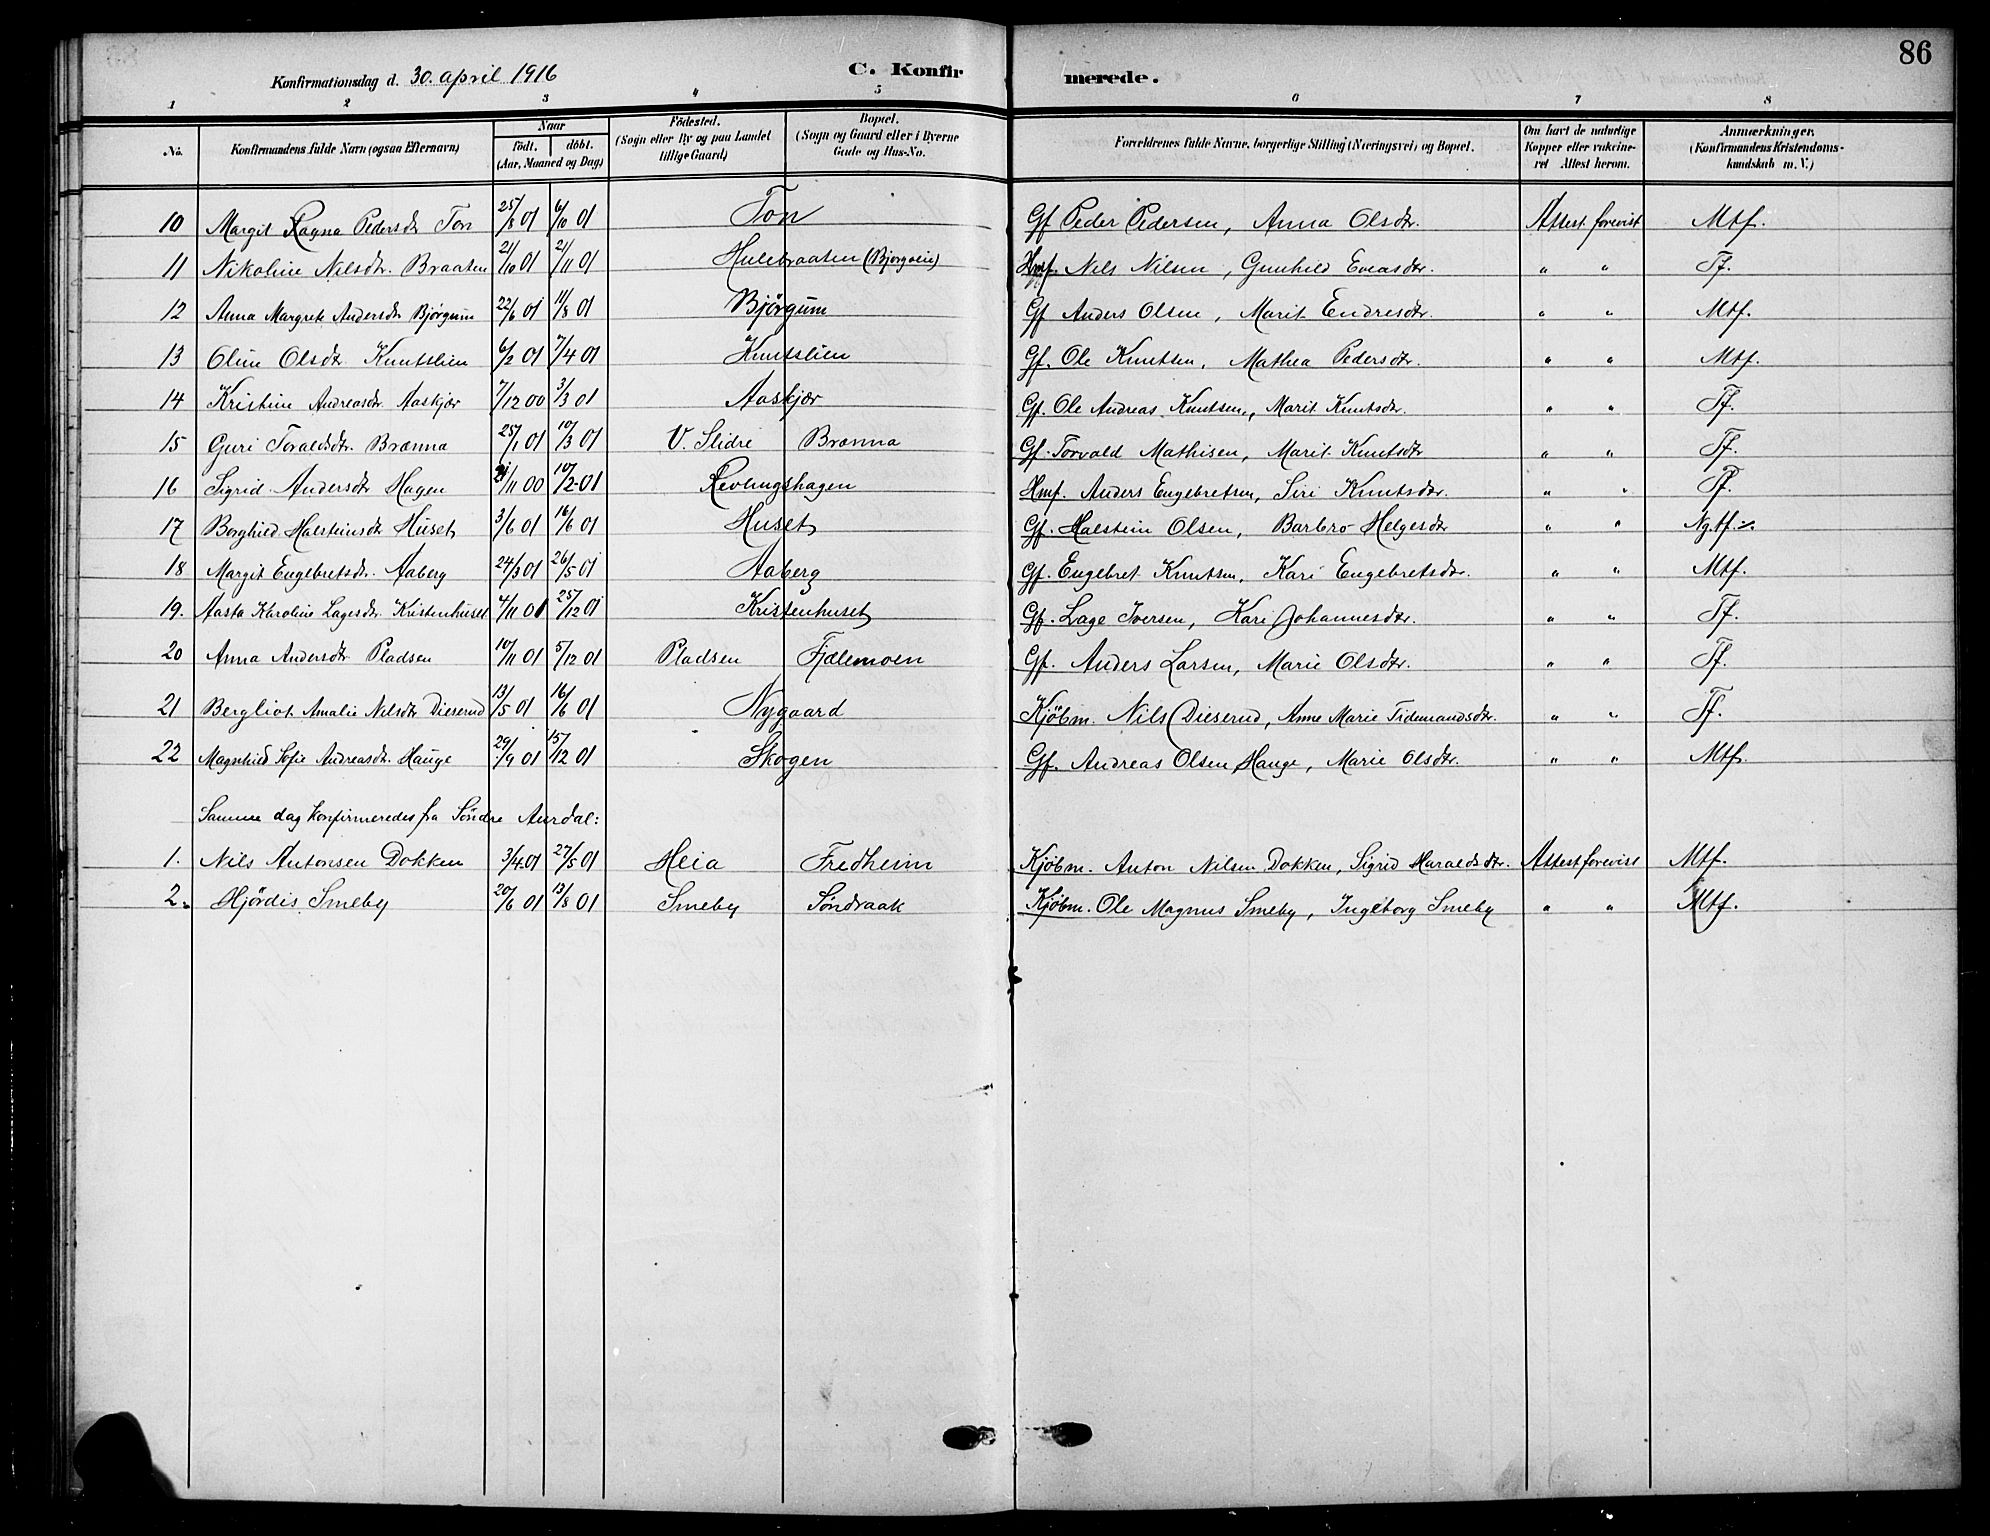 86
Konfirmationsdag d. 30. april 1916 C. Konfirmerede.
1 2 3 4 5 6 7 8
No. Konfirmandens fulde Navn (ogsaa Efternavn) Naar födt. döbt. (Aar, Maaned og Dag) Födested. (Sogn eller By og paa Landet tillige Gaard) Bopæl. (Sogn og Gaard eller i Byerne Gade og Hus-No. Forældrenes fulde Navne, borgerlige Stilling (Næringsvei) og Bopæl. Om havt de naturlige Kopper eller vakcineret Attest herom. Anmærkninger. (Konfirmandens Kristendomskundskab m. V.)
10 Margit Ragna Pedersdtr Ton 25/8 01 6/10 01 Ton Gf Peder Pedersen, Anna Olsdtr. Attest forevist Mtf.
11 Nikoline Nilsdtr. Braaten 2/10 01 2/11 01 Hulebraaten (Bjørgoein) Hmf. Nils Nilsen, Gunhild Evensdtr. " " Tf.
12 Anna Margrete Andersdtr Bjørgum 22/6 01 11/8 01 Bjørgum Gf Anders Olsen, Marit Endresdtr. " " Mtf.
13 Oline Olsdtr Knutslien 6/2 01 7/4 01 Knutslien Gf. Ole Knutsen, Mathea Pedersdtr. " " Mtf.
14 Kristine Andreasdtr. Aaskjær 7/12 00 3/3 01 Aaskjær Gf. Ole Andreas Knutsen, Marit Knutsdtr. " " Tf.
15 Guri Toraldsdtr. Brænna 25/1 01 10/3 01 V. Slidre Brænna Gf. Torvald Mathisen, Marit Knutsdtr " " Tf.
16 Sigrid Andersdtr Hagen /11 00 10/2 01 Revlingshagen Hmf. Anders Engebretsen, Siri Knutsdtr. " " Tf.
17 Borghild Halsteinsdtr Huset 3/6 01 16/6 01 Huset Gf. Halstein Olsen, Barbro Helgesdtr " " Ngtf.
18 Margit Engebretsdtr. Aaberg 24/3 01 26/5 01 Aaberg Gf. Engebret Knutsen, Kari Engebretsdtr. " " Mtf.
19. Aasta Karoline Lagesdtr. Kristenhuset 4/11 01 25/12 01 Kristenhuset Gf. Lage Iversen, Kari Johannesdtr. " " Tf.
20 Anna Andersdtr Pladsen 10/11 01 5/12 01 Pladsen Fjelemoen Gf. Anders Larsen, Marie Olsdtr. " " Tf.
21 Bergliot Amalie Nilsdtr Dieserud 13/5 01 16/6 01 Nygaard Kjöbm. Nils Dieserud, Anne Marie Tidemandsdtr. " " Tf.
22 Magnhild Sofie Andreasdtr. Hauge 29/9 01 15/12 01 Skogen Gf. Andreas Olsen Hauge, Marie Olsdtr. " " Mtf.
Samme dag konfirmeredes fra Søndre Aurdal:
1. Nils Antonsen Dokken 3/4 01 27/5 01 Heia Fredheim Kjöbm. Anton Nilsen Dokken, Sigrid Haraldsdtr. Attest forevist Mtf.
2. Hjördis Smeby 20/6 01 13/8 01 Smeby Søndraak Kjöbm. Ole Magnus Smeby, Ingeborg Smeby " " Mtf.